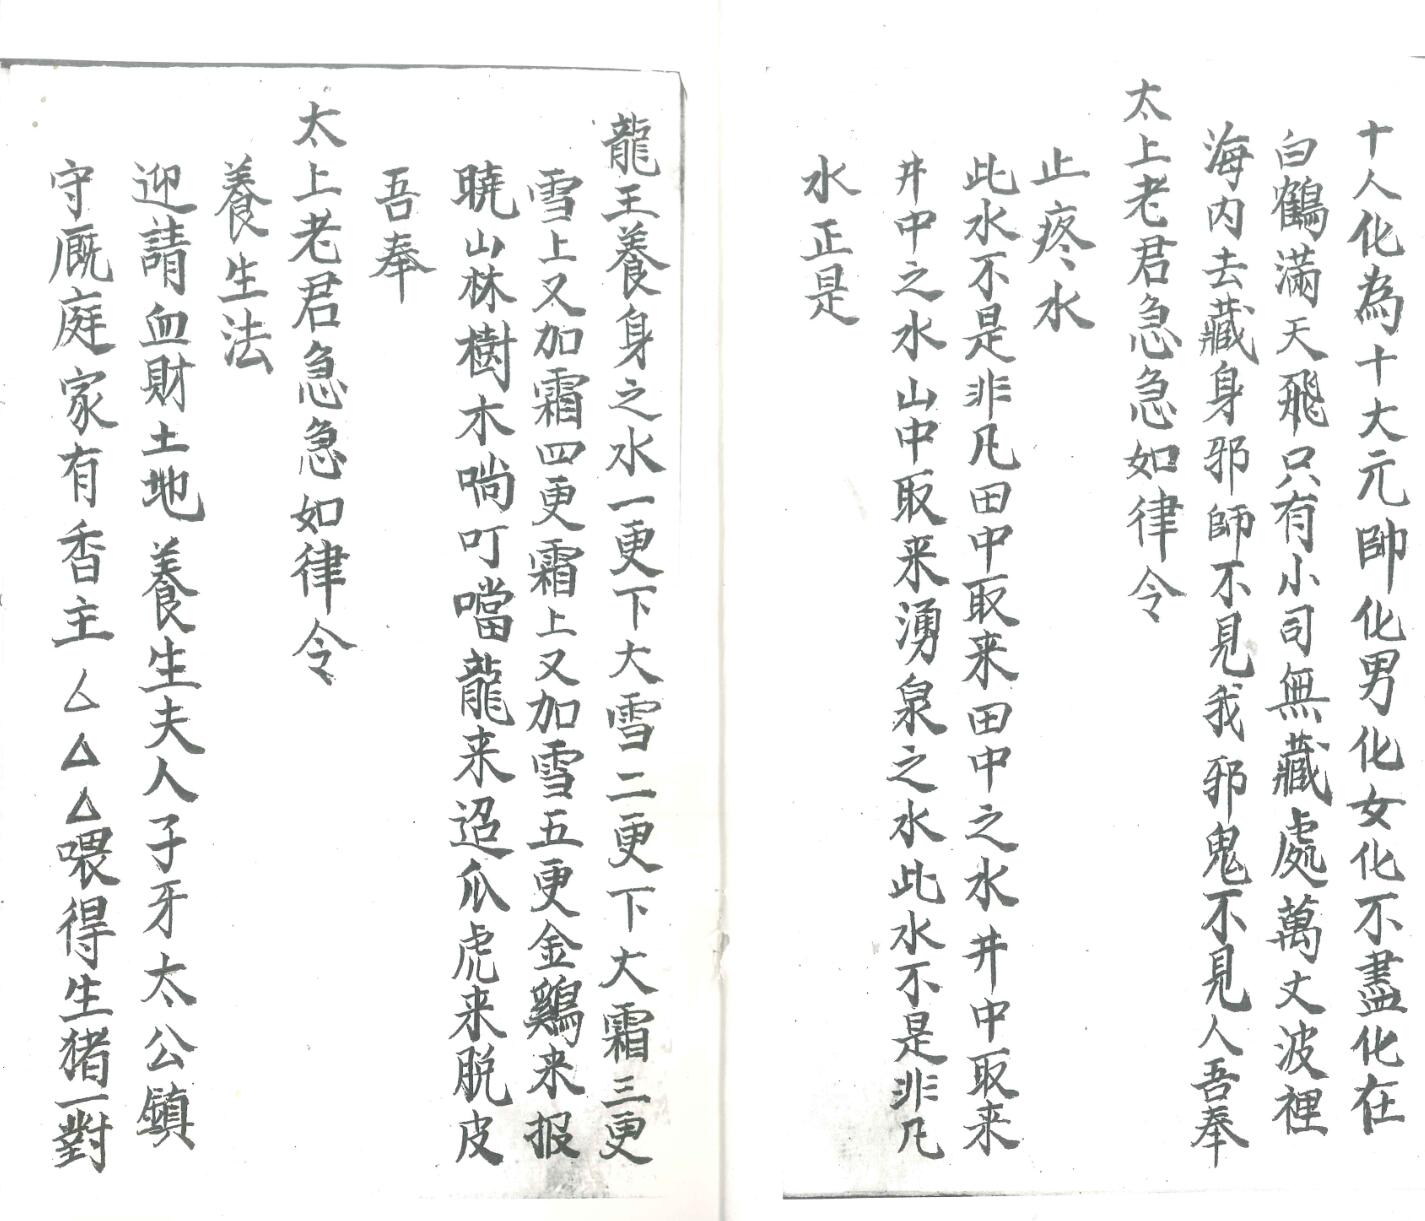 十人化為十大元帥化男化女化不盡化在
白鶴滿天飛只有小司無藏處萬丈波裡
海内去藏身邪師不見我邪鬼不見人吾奉
太上老君急急如律令
止疼水
此水不是非凡田中取来田中之水井中取来
井中之水山中取来湧泉之水此水不是非凡
水正是
龍王養身之水一更下大雪二更下大霜三更
雪上又加霜四更霜上又加雪五更金鷄来报
曉山林樹木啃叮噹龍来迢爪虎来脱皮
吾奉
太上老君急急如律令
養生法
迎請血財土地養生夫人子牙太公鎮
守厩庭家有香主△△△喂得生猪一對